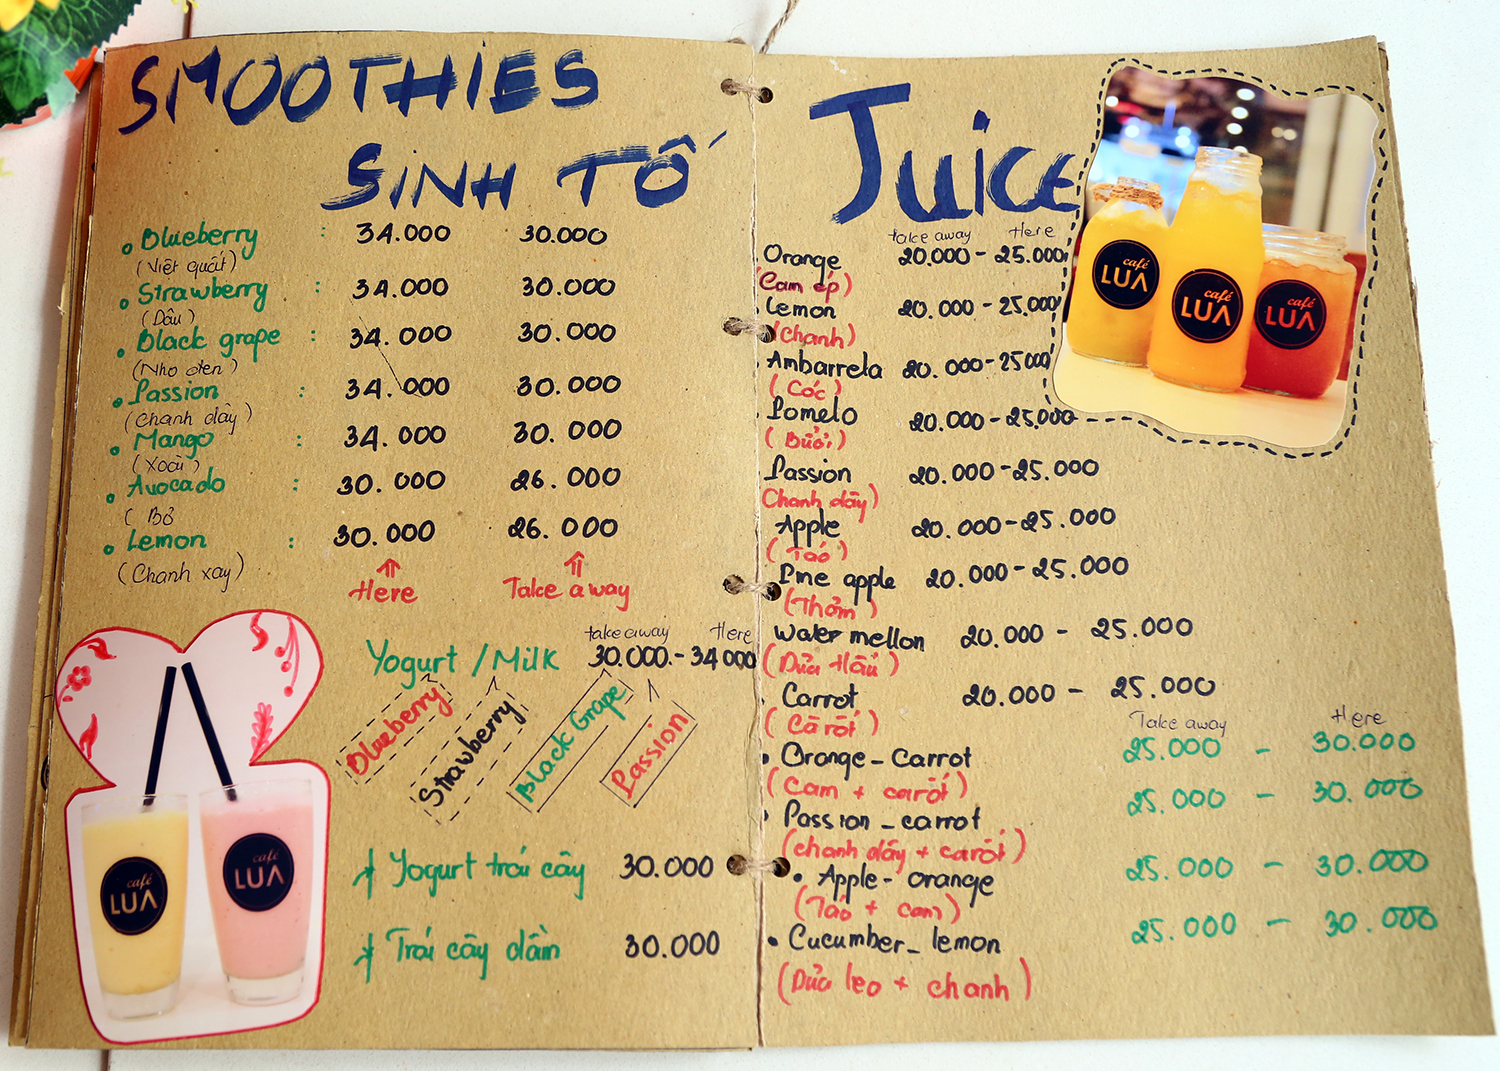 SMOOTHIES
SINH TỐ
Blueberry : 34.000 30.000
(Việt quất)
Strawberry : 34.000 30.000
(Dâu)
Black grape : 34.000 30.000
(Nho đen)
Passion : 34.000 30.000
(Chanh dây)
Mango : 34.000 30.000
(Xoài)
Avocado : 30.000 26.000
( Bơ
Lemon : 30.000 26.000
(Chanh xay)
Here Take away
take away Here
Yogurt / Milk 30.000.- 34 000
Blueberry
Strawberry
Black Grape
Passion
Yogurt trái cây 30.000
Trái cây dầm 30.000
café
LUA
café
LUA
Juice
take away Here
Orange 20.000 - 25.000
(Cam ép)
Lemon 20.000 - 25.000
(chanh)
Ambarrela 20.000 - 25000
(Cóc)
Pomelo 20.000 - 25.000
(Bưởi)
Passion 20.000 - 25.000
Chanh dây)
Apple 20.000 - 25.000
(Táo)
Pine apple 20.000 - 25.000
(Thơm)
water mellon 20.000 - 25.000
(Dưa Hấu)
Carrot 20.000 - 25.000
(Cà rốt)
Take away Here
Orange - Carrot 25.000 - 30.000
(Cam + carốt)
Passion - carrot 25.000 - 30.000
(chanh dây + carốt)
Apple - orange 25.000 - 30.000
(Táo + cam)
Cucumber - lemon 25.000 - 30.000
(Dưa leo + chanh)
café
LUA
café
LUA
café
LUA